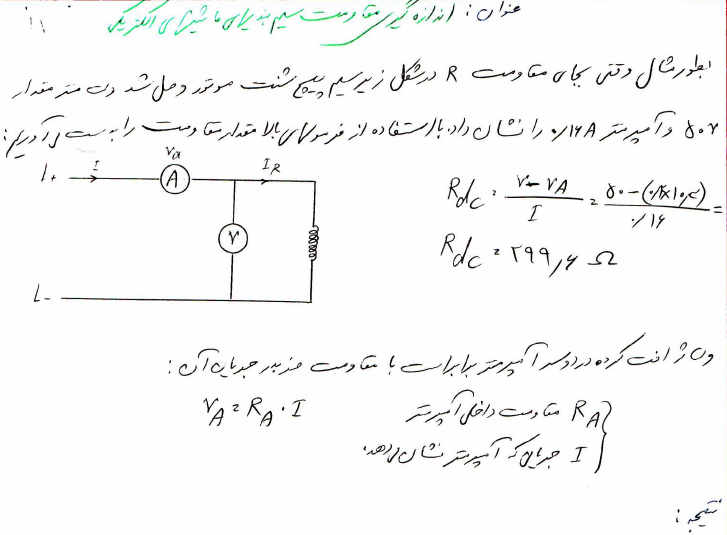 عنوان: اندازه گیری مقاومت سیم بندیهای ماشینهای الکتریکی
بطور مثال وقتی بجای مقاومت R در شکل زیر سیم پیچ شنت موتور وصل شد ولت متر مقدار
۵۰v و آمپرمتر ۰/۱۶A را نشان داد. با استفاده از فرمولهای بالا مقدار مقاومت را بدست می آوریم:
L+ I Va A IR
V
L-
Rdc = V - VA / I = ۵۰-(۰/۱۶×۱۰/۴) / ۰/۱۶ =
Rdc = ۲۹۹/۶ Ω
ولتاژ افت کرده در دو سر آمپرمتر برابر است با مقاومت ضربدر جریان آن:
VA = RA . I
RA مقاومت داخلی آمپرمتر
I جریانی که آمپرمتر نشان می دهد.
نتیجه: